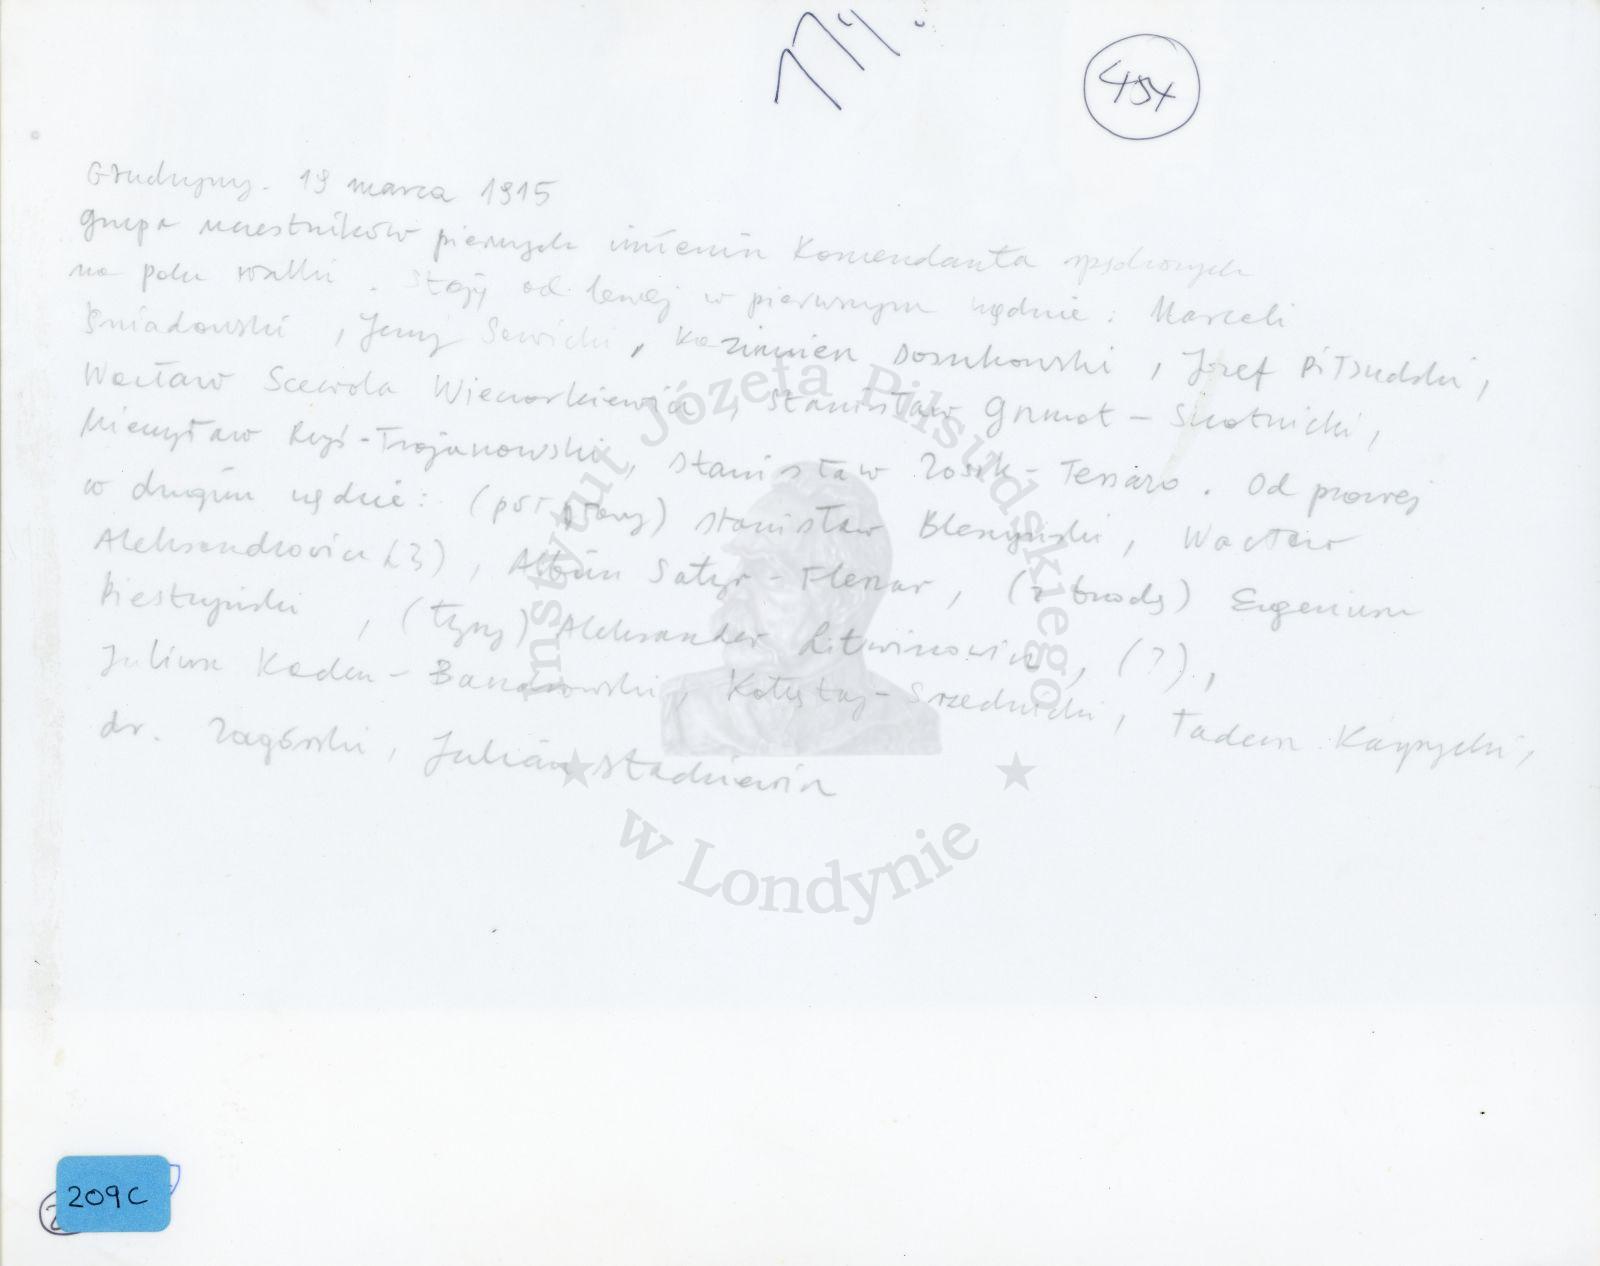 454
Grudzyny. 19 marca 1915
grupa uczestników pierwszych imienin Komendanta spędzonych
na polu walki. Stoją od lewej w pierwszym rzędzie: Marceli
Śniadowski, Jerzy Sawicki, Kazimierz Sosnkowski, Józef Piłsudski,
Wacław Scewola Wieczorkiewicz, Stanisław Grzmot-Skotnicki,
Mieczysław Ryś-Trojanowski, Stanisław Zosik-Tessaro. Od prawej
w drugim rzędzie: (pół głowy) Stanisław Błeszyński, Wacław
Aleksandrowicz (?), Albin Satyr-Fleszar, (z brodą) Eugeniusz
Piestrzyński, (łysy) Aleksander Litwinowicz, (?),
Juliusz Kaden-Bandrowski, Kołłątaj-Srzednicki, Tadeusz Kasprzycki,
dr. Zagórski, Julian Stachiewicz
Instytut Józefa Piłsudskiego
w Londynie
209C